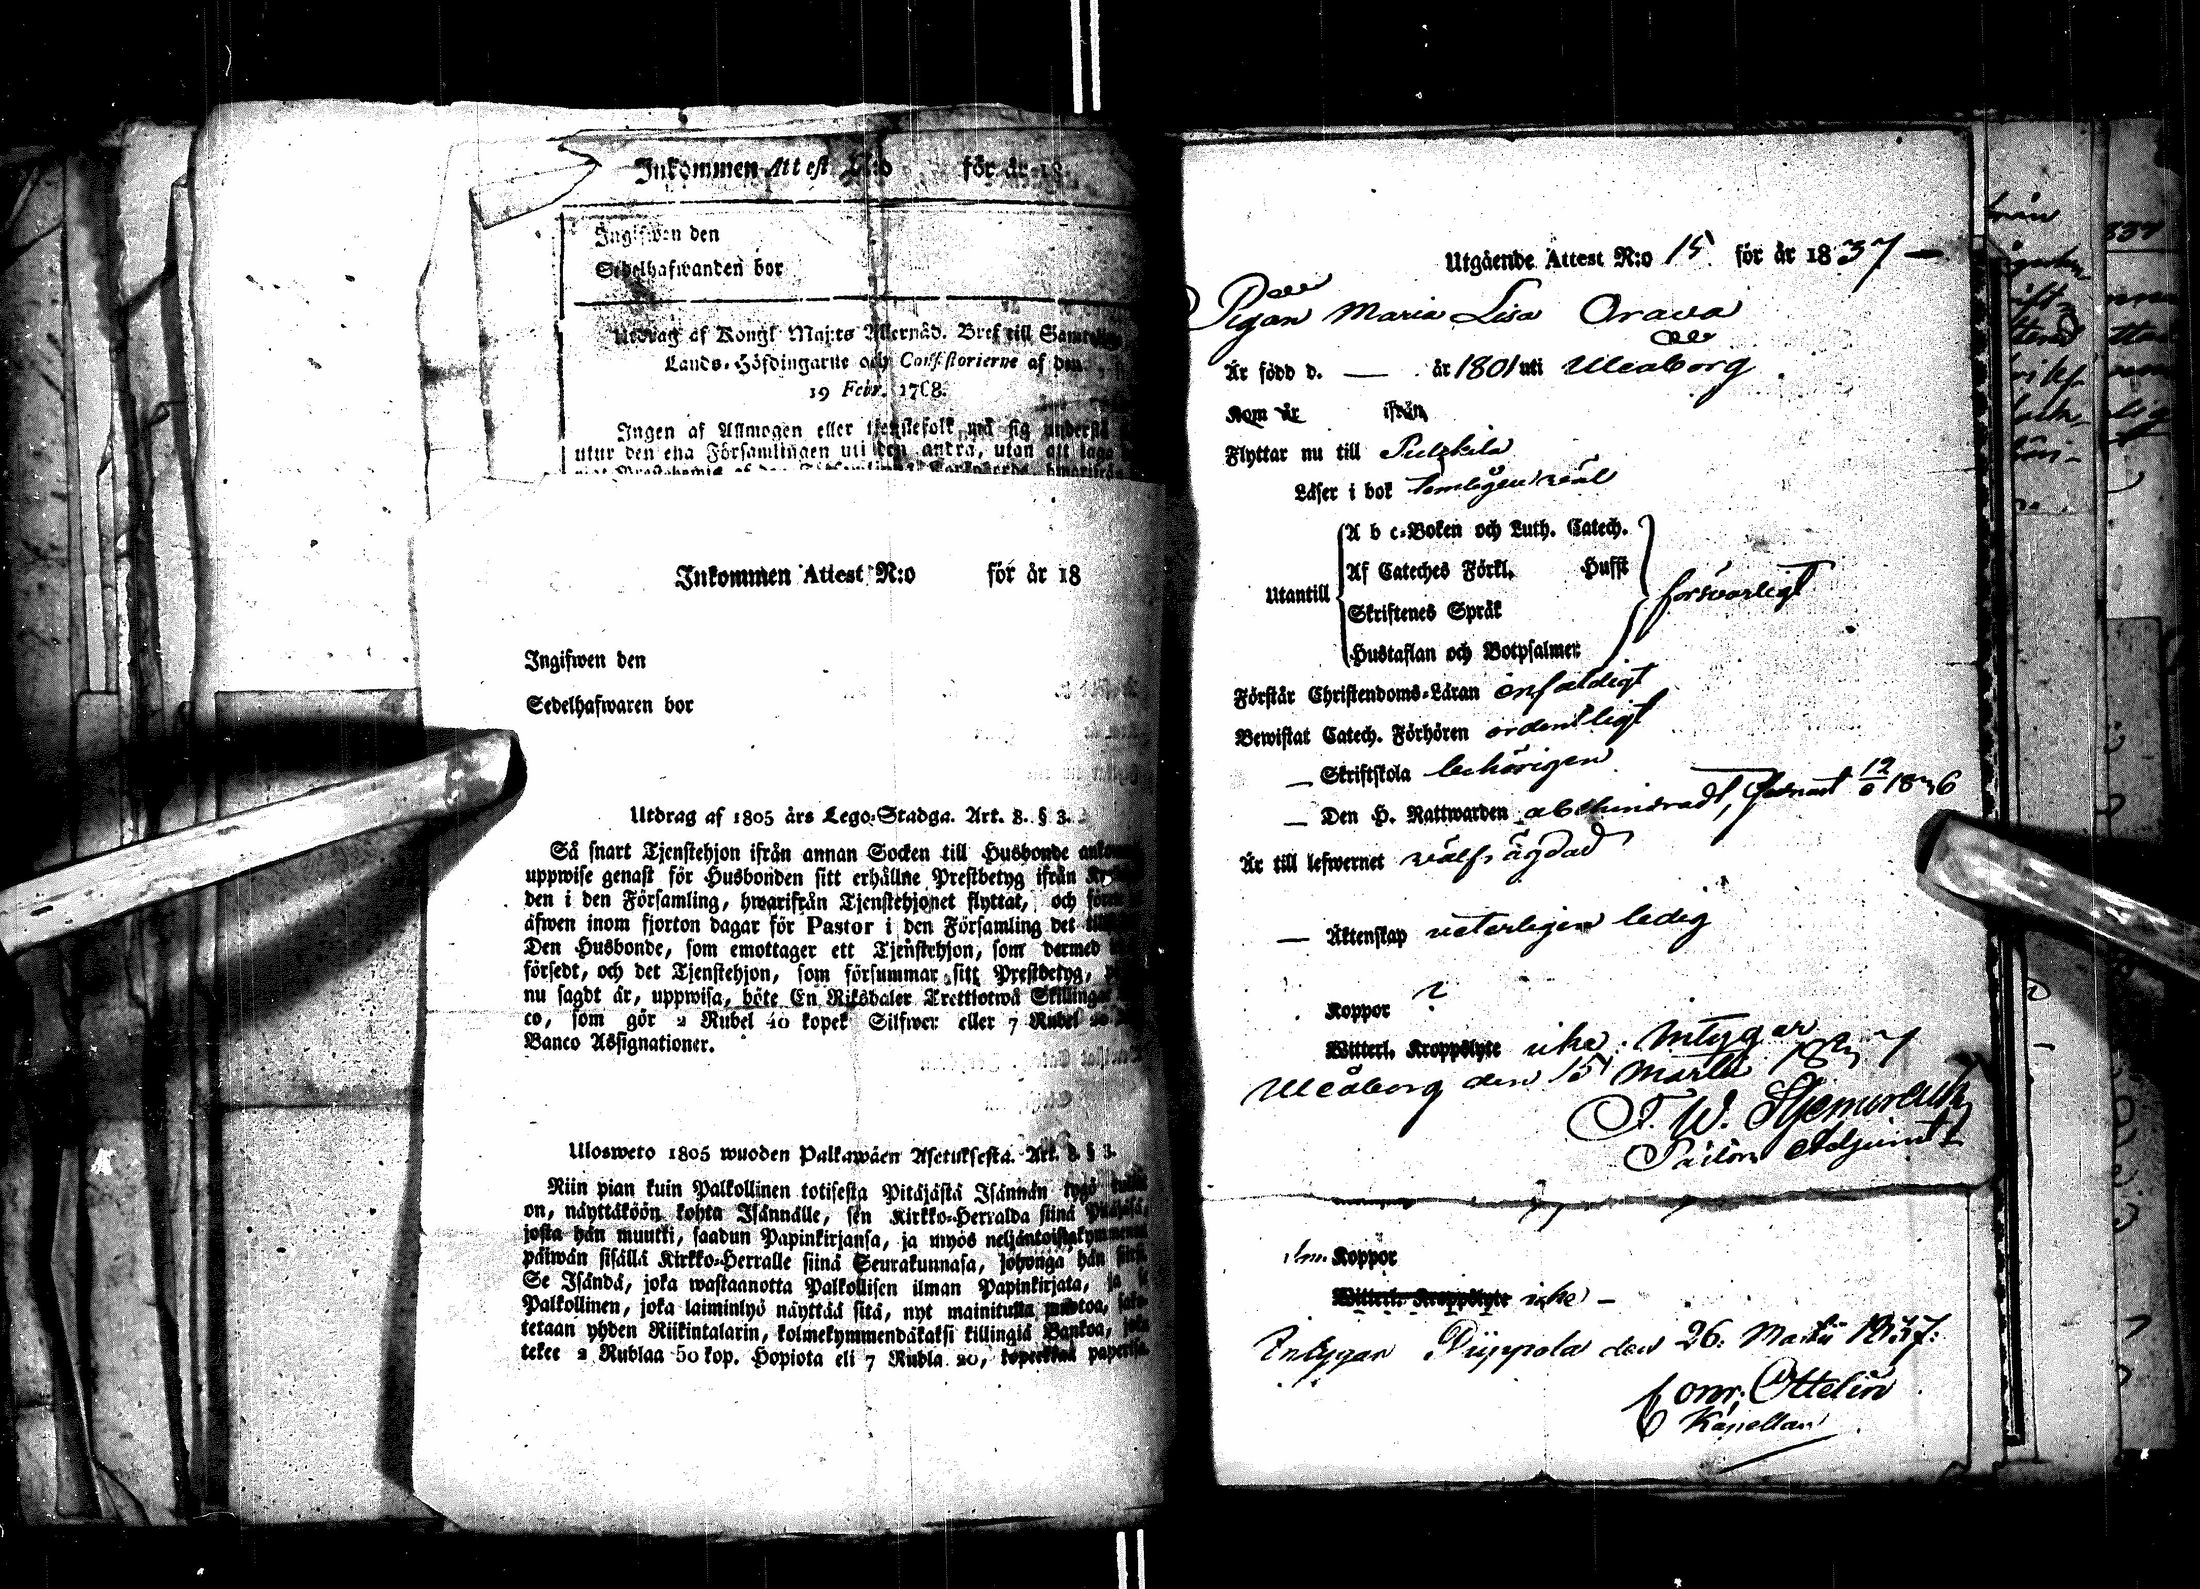 Inkommen Attest N:o för år 18
Ingifwen den
Sedelhafwanden bor
Utdrag af Kongl Maj:ts Allernåd. Bref till
Lands-Höfdingarne och Consistorierne af den
19 Febr. 1768.
Ingen af Allmogen eller tjenstefolk må sig understå
utur den ena Församlingen uti den andra, utan att taga
Inkommen Attest N:o för år 18
Ingifwen den
Sedelhafwaren bor
Utdrag af 1805 års Lego-Stadga. Art. 8. § 3.
Så snart Tjenstehjon ifrån annan Socken till Husbonde
uppwise genast för Husbonden sitt erhållne Prestbetyg ifrån
den i den Församling, hwarifrån Tjenstehjonet flyttat, och
äfwen inom fjorton dagar för Pastor i den Församling det
Den Husbonde, som emottager ett Tjenstehjon, som dermed
försedt, och det Tjenstehjon, som försummar sitt Prestbetyg,
nu sagdt är, uppwisa, böte En Riksdaler Trettiotwå Skillingar
co, som gör 2 Rubel 40 kopek Silfwer eller 7 Rubel 20
Banco Assignationer.
Ulosweto 1805 wuoden Palkawäen Asetuksesta. Art. 8. § 3.
Niin pian kuin Palkollinen toisesta Pitäjästä Isännän tygö
on, näyttäköön kohta Isännälle, sen Kirkko-Herralda siinä Pitäjäsä,
josta hän muutti, saadun Papinkirjansa, ja myös neljäntoistakymmenen
päiwän sisällä Kirkko-Herralle siinä Seurakunnasa, johonga hän
Se Isändä, joka wastaanotta Palkollisen ilman Papinkirjata, ja
Palkollinen, joka laiminlyö näyttää sitä, nyt mainitulla muotoa,
tetaan yhden Riikintalarin, kolmekymmendäkaksi killingiä Bankoa,
tekee 2 Rublaa 50 kop. Hopiota eli 7 Rubla 20, kopeekkaa paperisa.
Utgående Attest N:o 15 för år 1837 —
Pigan Maria Lisa Orava
Är född d. — år 1801 uti Uleaborg
Kom år ifrån
Flyttar nu till Pulkkila
Läser i bok temligen wäl
A b c-Boken och Luth. Catech.
Af Cateches Förkl. Hufst
Utantill
Skriftenes Språk
försvarligt
Hustaflan och Botpsalmer
Förstår Christendoms-Läran enfaldigt
Bewistat Catech. Förhören ordentligt
— Skriftskola behörigen
— Den H. Nattwarden obehindradt, 1836
Är till lefwernet välfrägdad
— Äktenskap veterligen ledig
Koppor ?
Witterl. Kroppslyte icke. Intygar
Uleåborg den 15 Martii 1837
F. W.
Adjunct
Koppor
Witterl. Kroppslyte icke —
Intygar Piippola den 26. Martii 1837.
Conr. Ottelin
Kapellan